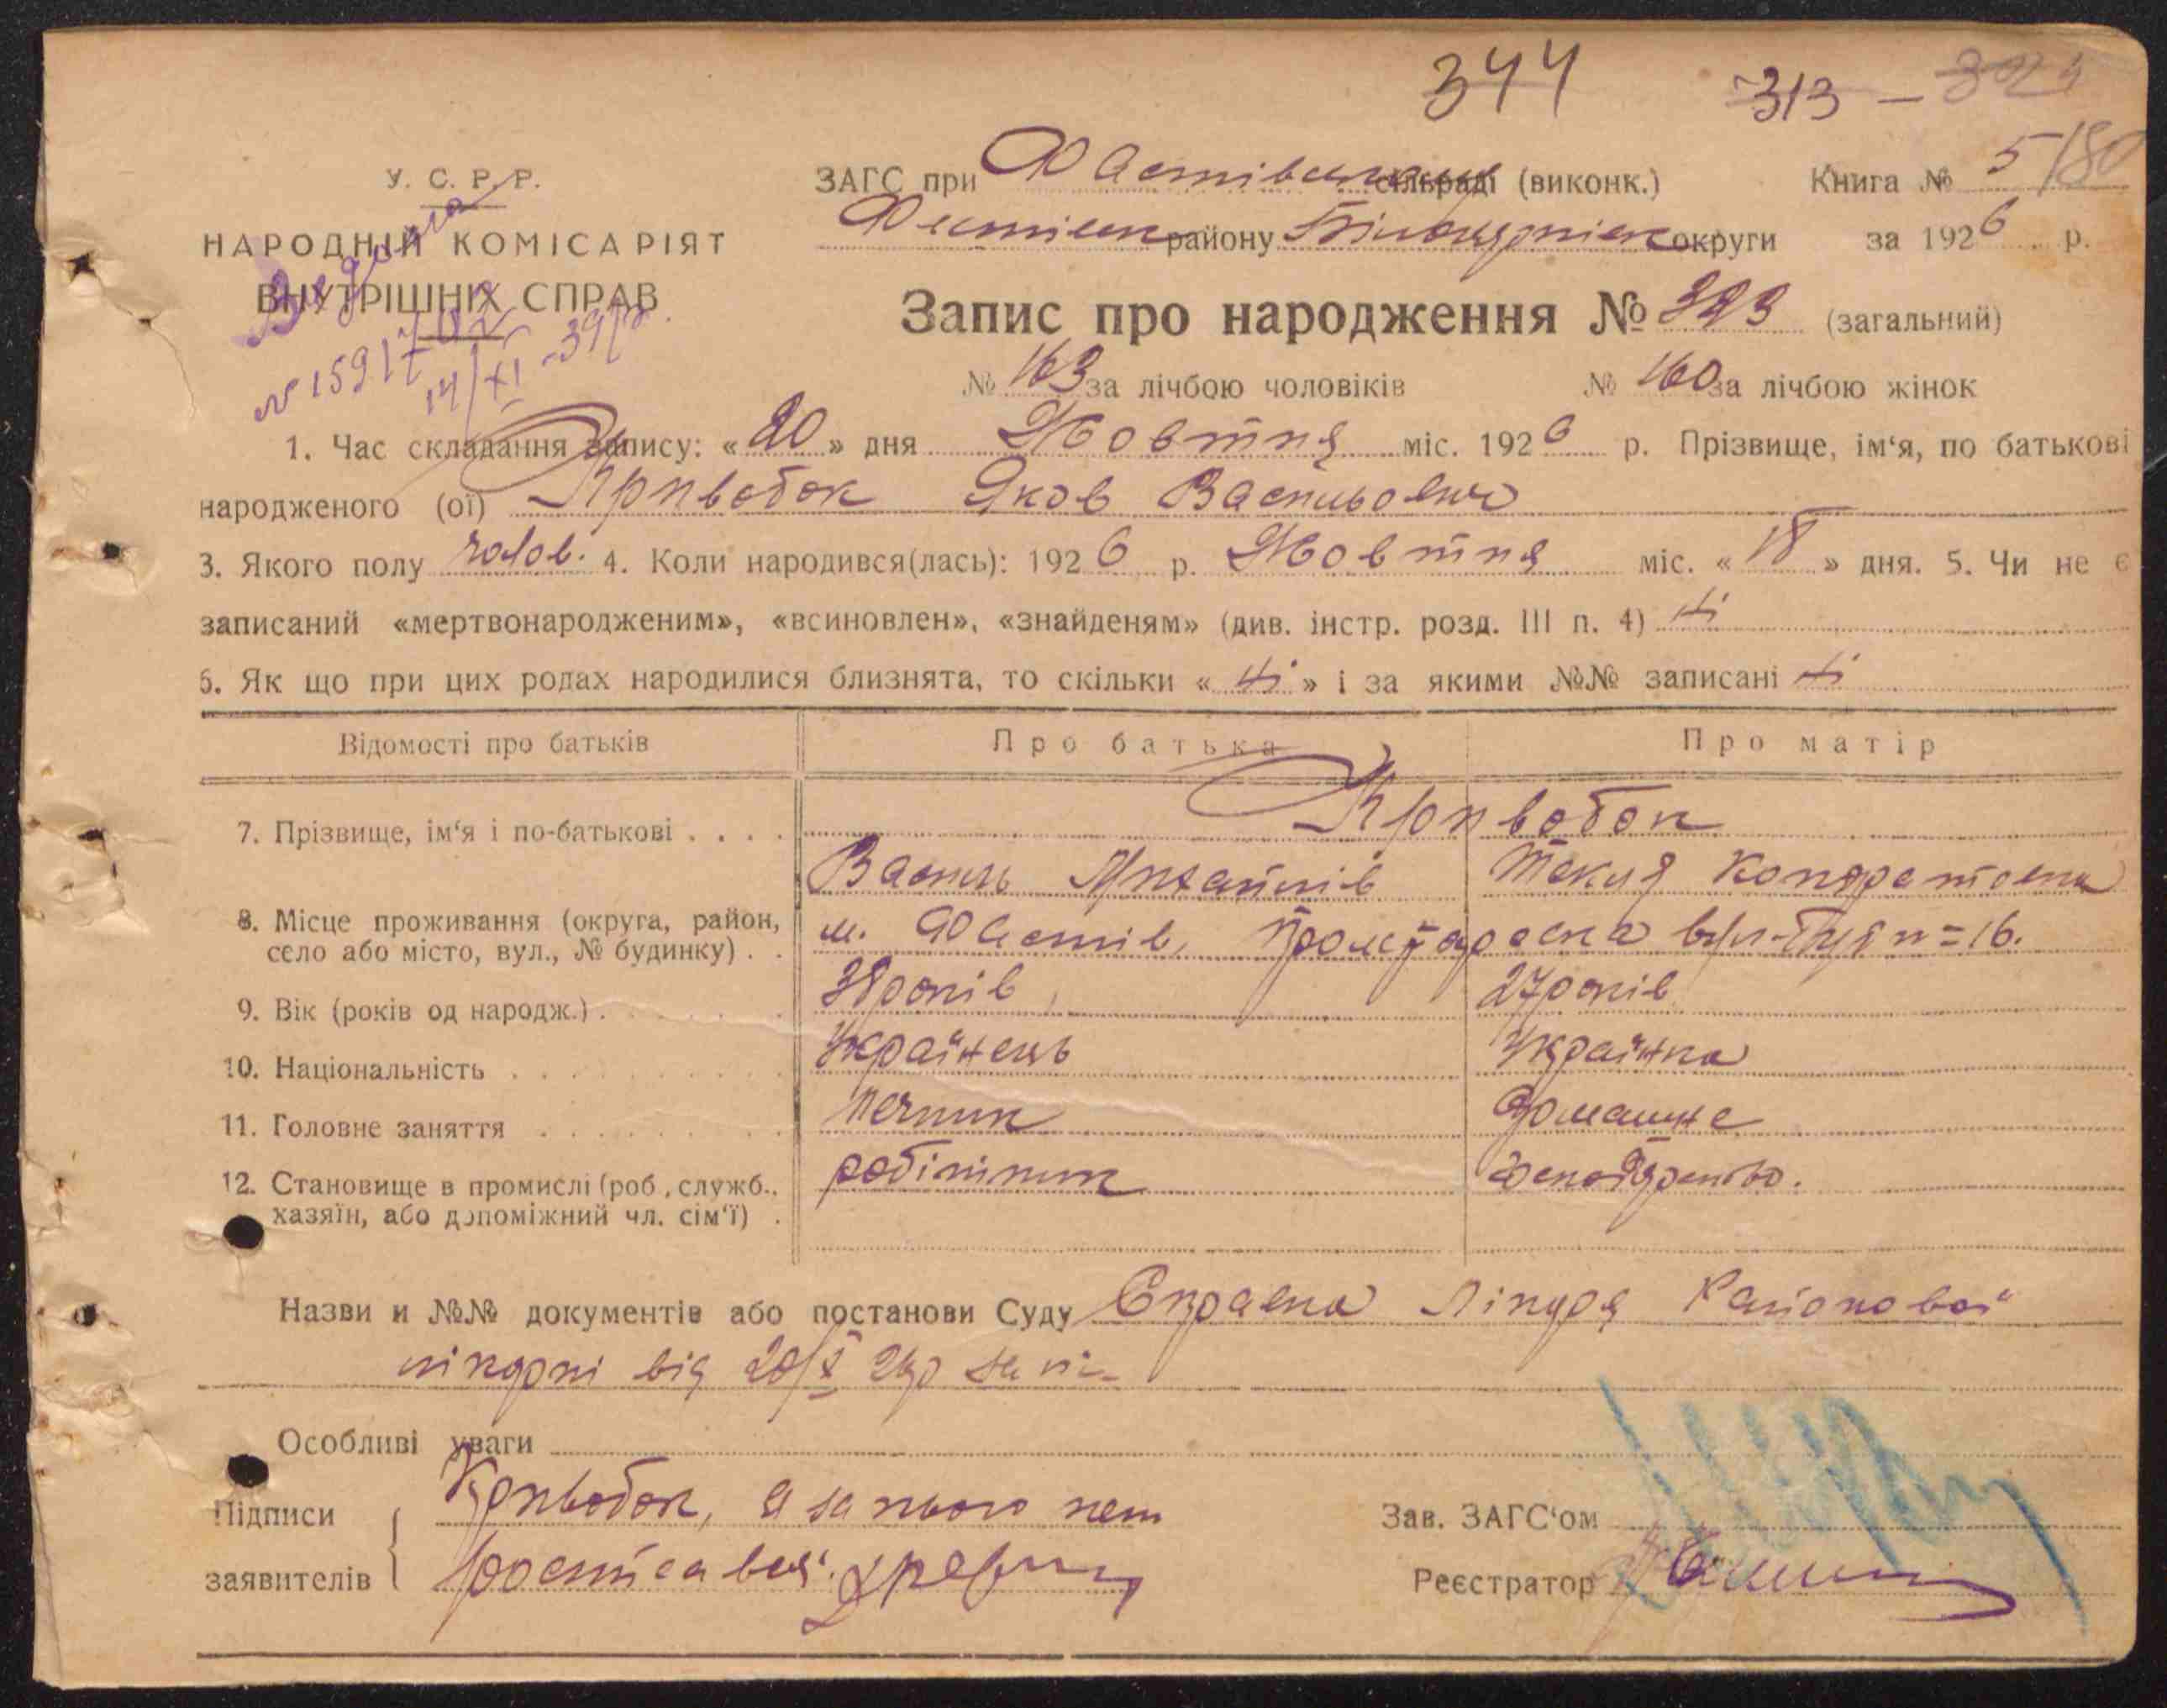 344 313 — 324
У. С. Р. Р.
НАРОДНІЙ КОМІСАРІЯТ
ВНУТРІШНІХ СПРАВ
Видана
№ 1591
14/XI - 39 р.
ЗАГС при Фастівськім сільраді (виконк.) Книга № 5/80
Фастівськ району Білоцерківськ округи за 1926 р.
Запис про народження № 323 (загальний)
№ 163 за лічбою чоловіків № 160 за лічбою жінок
1. Час складання запису: «20» дня Жовтня міс. 1926 р. Прізвище, ім‘я, по батькові
народженого (ої) Кривобок Яков Васильович
3. Якого полу чолов. 4. Коли народився(лась): 1926 р. Жовтня міс. «18» дня. 5. Чи не є
записаний «мертвонародженим», «всиновлен», «знайденям» (див. інстр. розд. III п. 4) Ні
6. Як що при цих родах народилися близнята, то скільки «Ні» і за якими №№ записані Ні
Відомості про батьків Про батька Про матір
7. Прізвище, ім‘я і по-батькові . . . . Кривобок
Василь Михайлів Текля Кондратовна
8. Місце проживання (округа, район,
село або місто, вул., № будинку) . . м. Фастів, вул. Буд н=16.
9. Вік (років од народж.) . . . . . . 38 років 27 років
10. Національність . . . . . . . . . . Українець Українка
11. Головне заняття . . . . . . . . . печник домашне
12. Становище в промислі (роб, служб., робітник господарство.
хазяїн, або допоміжний чл. сім‘ї) .
Назви и №№ документів або постанови Суду Справка Лікаря Районової
лікарні від 20/X 26р за №
Особливі уваги
Підписи Кривобок, а за нього неп
заявителів
Зав. ЗАГС‘ом
Реєстратор